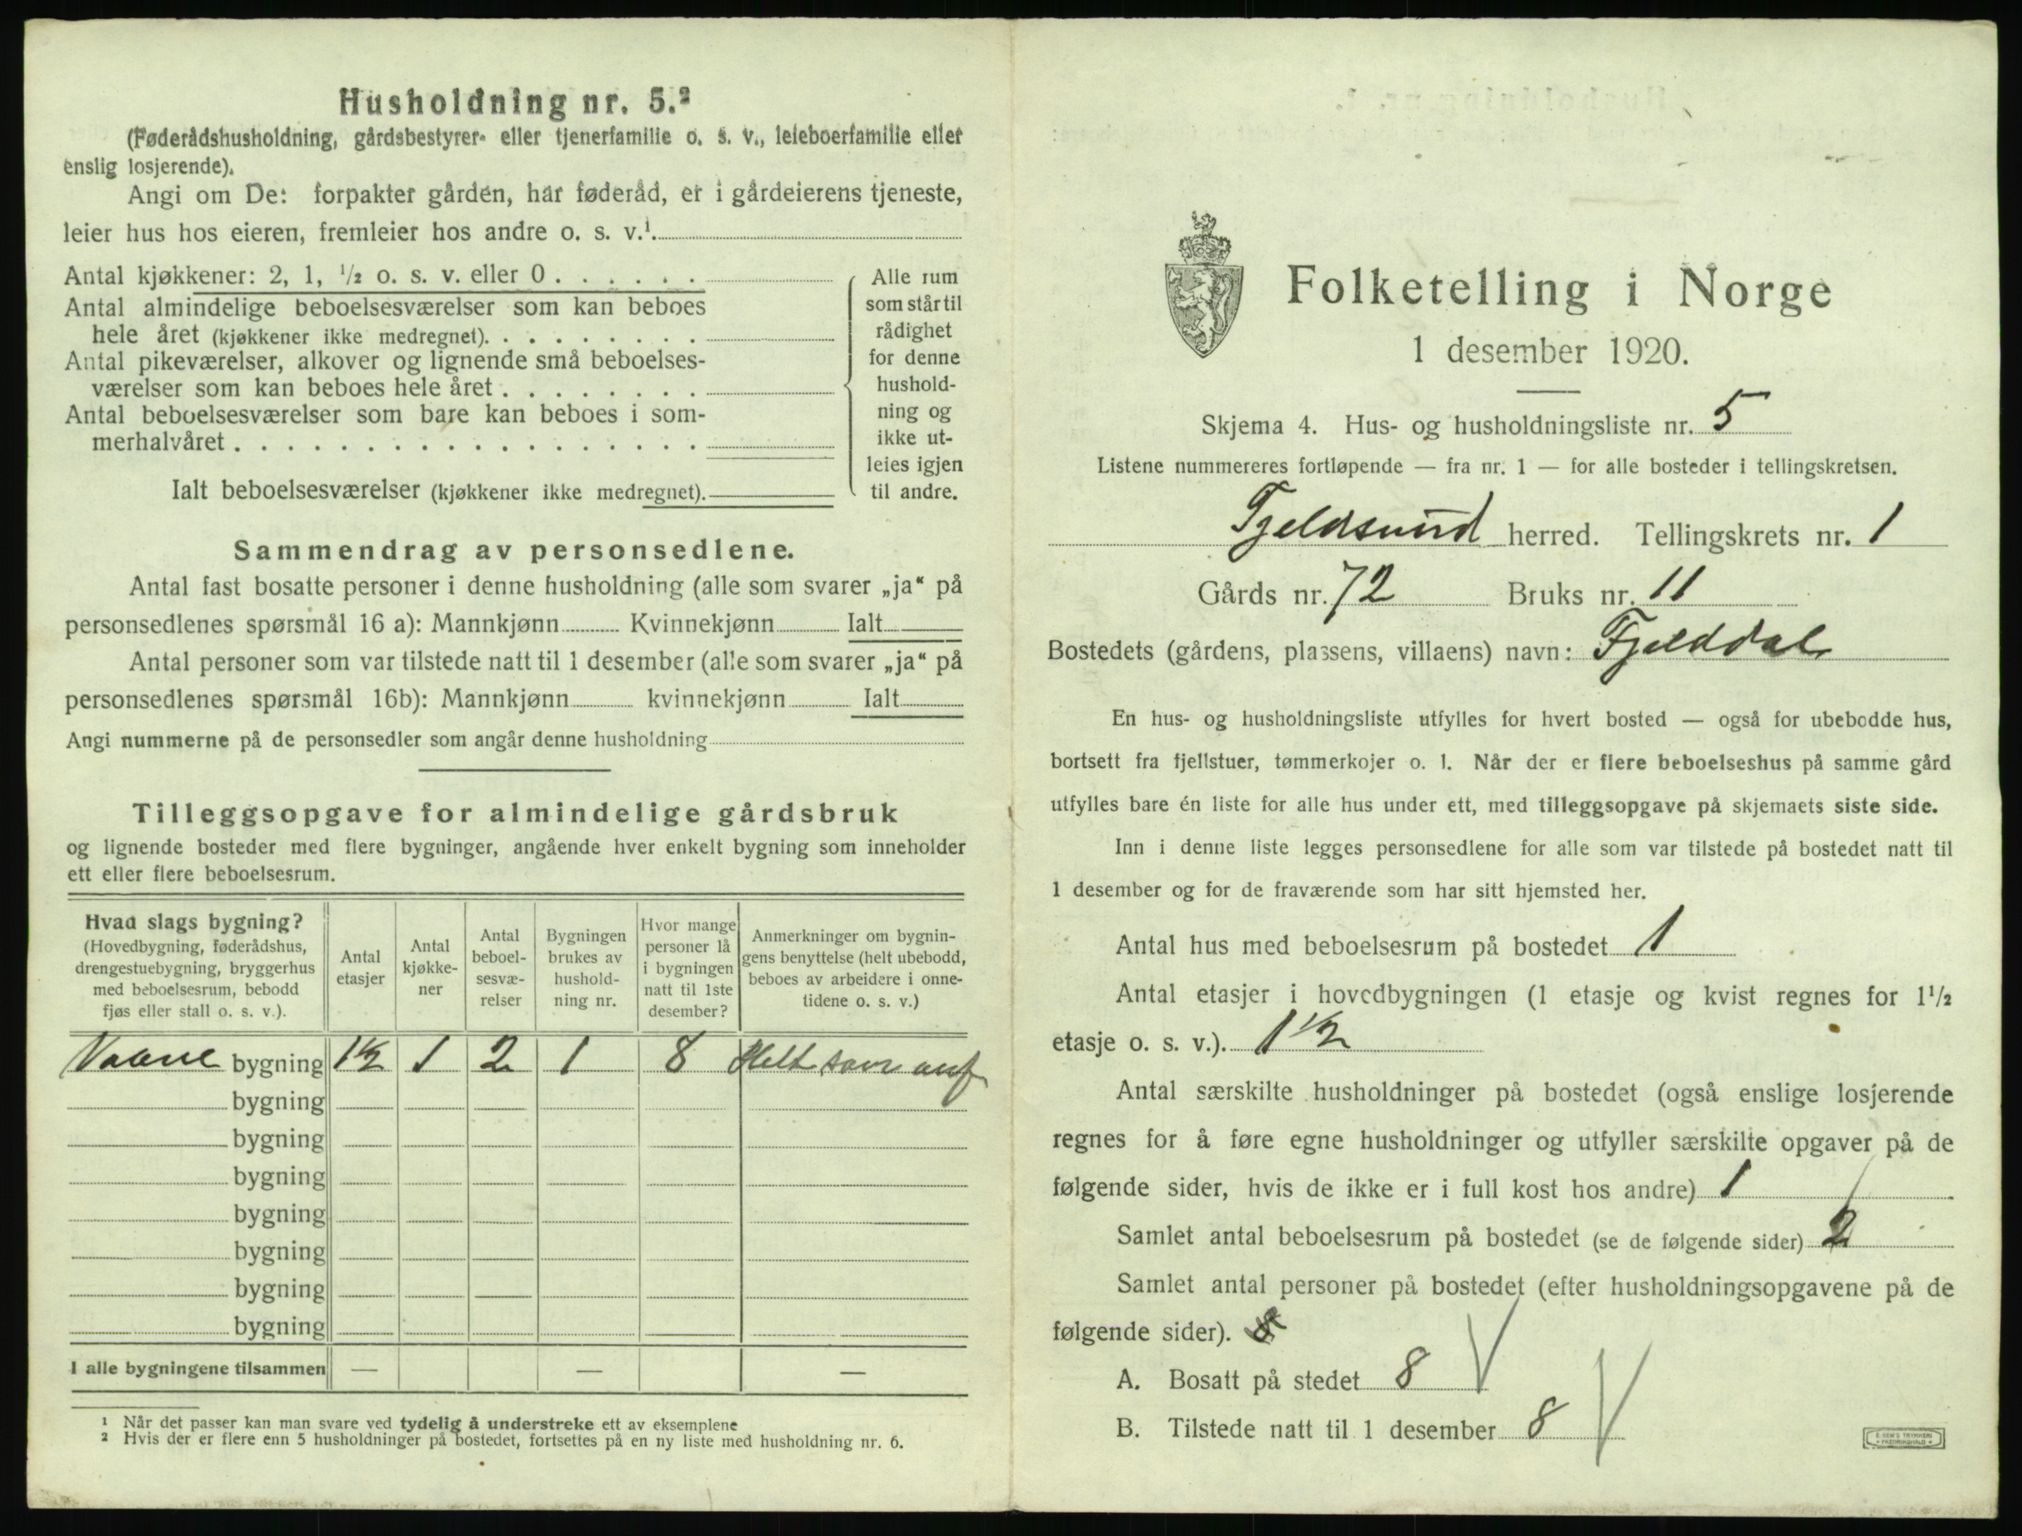 Husholdning nr. 5.²
(Føderådshusholdning, gårdsbestyrer- eller tjenerfamilie o. s. v., leieboerfamilie eller
enslig losjerende).
Angi om De: forpakter gården, har føderåd, er i gårdeierens tjeneste,
leier hus hos eieren, fremleier hos andre o. s. v.¹
Antal kjøkkener: 2, 1, ½ o. s. v. eller 0 . . . . . .
Antal almindelige beboelsesværelser som kan beboes
hele året (kjøkkener ikke medregnet). . . . . . . . .
Antal pikeværelser, alkover og lignende små beboelses-
værelser som kan beboes hele året . . . . . . . .
Antal beboelsesværelser som bare kan beboes i som-
merhalvåret . . . . . . . . . . . . . . . . . .
Ialt beboelsesværelser (kjøkkener ikke medregnet).
Alle rum
som står til
rådighet
for denne
hushold-
ning og
ikke ut-
leies igjen
til andre.
Sammendrag av personsedlene.
Antal fast bosatte personer i denne husholdning (alle som svarer „ja“ på
personsedlenes spørsmål 16 a): Mannkjønn Kvinnekjønn Ialt
Antal personer som var tilstede natt til 1 desember (alle som svarer „ja“ på
personsedlenes spørsmål 16b): Mannkjønn kvinnekjønn Ialt
Angi nummerne på de personsedler som angår denne husholdning
Tilleggsopgave for almindelige gårdsbruk
og lignende bosteder med flere bygninger, angående hver enkelt bygning som inneholder
ett eller flere beboelsesrum.
Hvad slags bygning?
(Hovedbygning, føderådshus,
drengestuebygning, bryggerhus
med beboelsesrum, bebodd
fjøs eller stall o. s. v.).
Antal
etasjer
Antal
kjøkke-
ner
Antal
beboel-
sesvæ-
relser
Bygningen
brukes av
hushold-
ning nr.
Hvor mange
personer lå
i bygningen
natt til 1ste
desember?
Anmerkninger om bygnin-
gens benyttelse (helt ubebodd,
beboes av arbeidere i onne-
tidene o. s. v.)
Vaane bygning 1½ 1 2 1 8 Helt som anf
bygning
bygning
bygning
bygning
bygning
bygning
bygning
I alle bygningene tilsammen — — —
¹ Når det passer kan man svare ved tydelig å understreke ett av eksemplene
² Hvis der er flere enn 5 husholdninger på bostedet, fortsettes på en ny liste med husholdning nr. 6.
Folketelling i Norge
1 desember 1920.
Skjema 4. Hus- og husholdningsliste nr. 5
Listene nummereres fortløpende — fra nr. 1 — for alle bosteder i tellingskretsen.
Fjeldsund herred. Tellingskrets nr. 1
Gårds nr. 72 Bruks nr. 11
Bostedets (gårdens, plassens, villaens) navn: Fjelddal
En hus- og husholdningsliste utfylles for hvert bosted — også for ubebodde hus,
bortsett fra fjellstuer, tømmerkojer o. l. Når der er flere beboelseshus på samme gård
utfylles bare én liste for alle hus under ett, med tilleggsopgave på skjemaets siste side.
Inn i denne liste legges personsedlene for alle som var tilstede på bostedet natt til
1 desember og for de fraværende som har sitt hjemsted her.
Antal hus med beboelsesrum på bostedet 1
Antal etasjer i hovedbygningen (1 etasje og kvist regnes for 1½
etasje o. s. v.). 1½
Antal særskilte husholdninger på bostedet (også enslige losjerende
regnes for å føre egne husholdninger og utfyller særskilte opgaver på de
følgende sider, hvis de ikke er i full kost hos andre) 1
Samlet antal beboelsesrum på bostedet (se de følgende sider) 2
Samlet antal personer på bostedet (efter husholdningsopgavene på de
følgende sider).
A. Bosatt på stedet 8
B. Tilstede natt til 1 desember 8